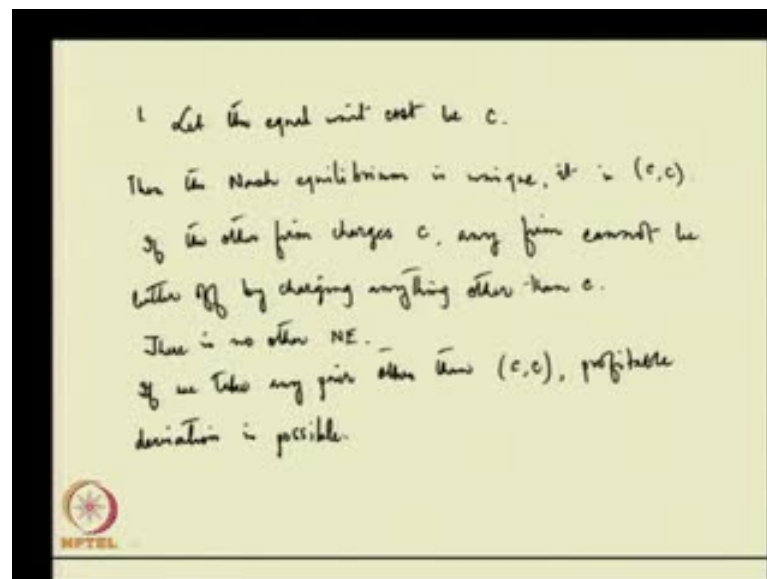 1 Let the equal unit cost be c.
Then the Nash equilibrium is unique, it is (c,c)
If the other firm charges c, any firm cannot be
better off by charging anything other than c.
There is no other NE.
If we take any pair other than (c,c), profitable
deviation is possible.
NPTEL